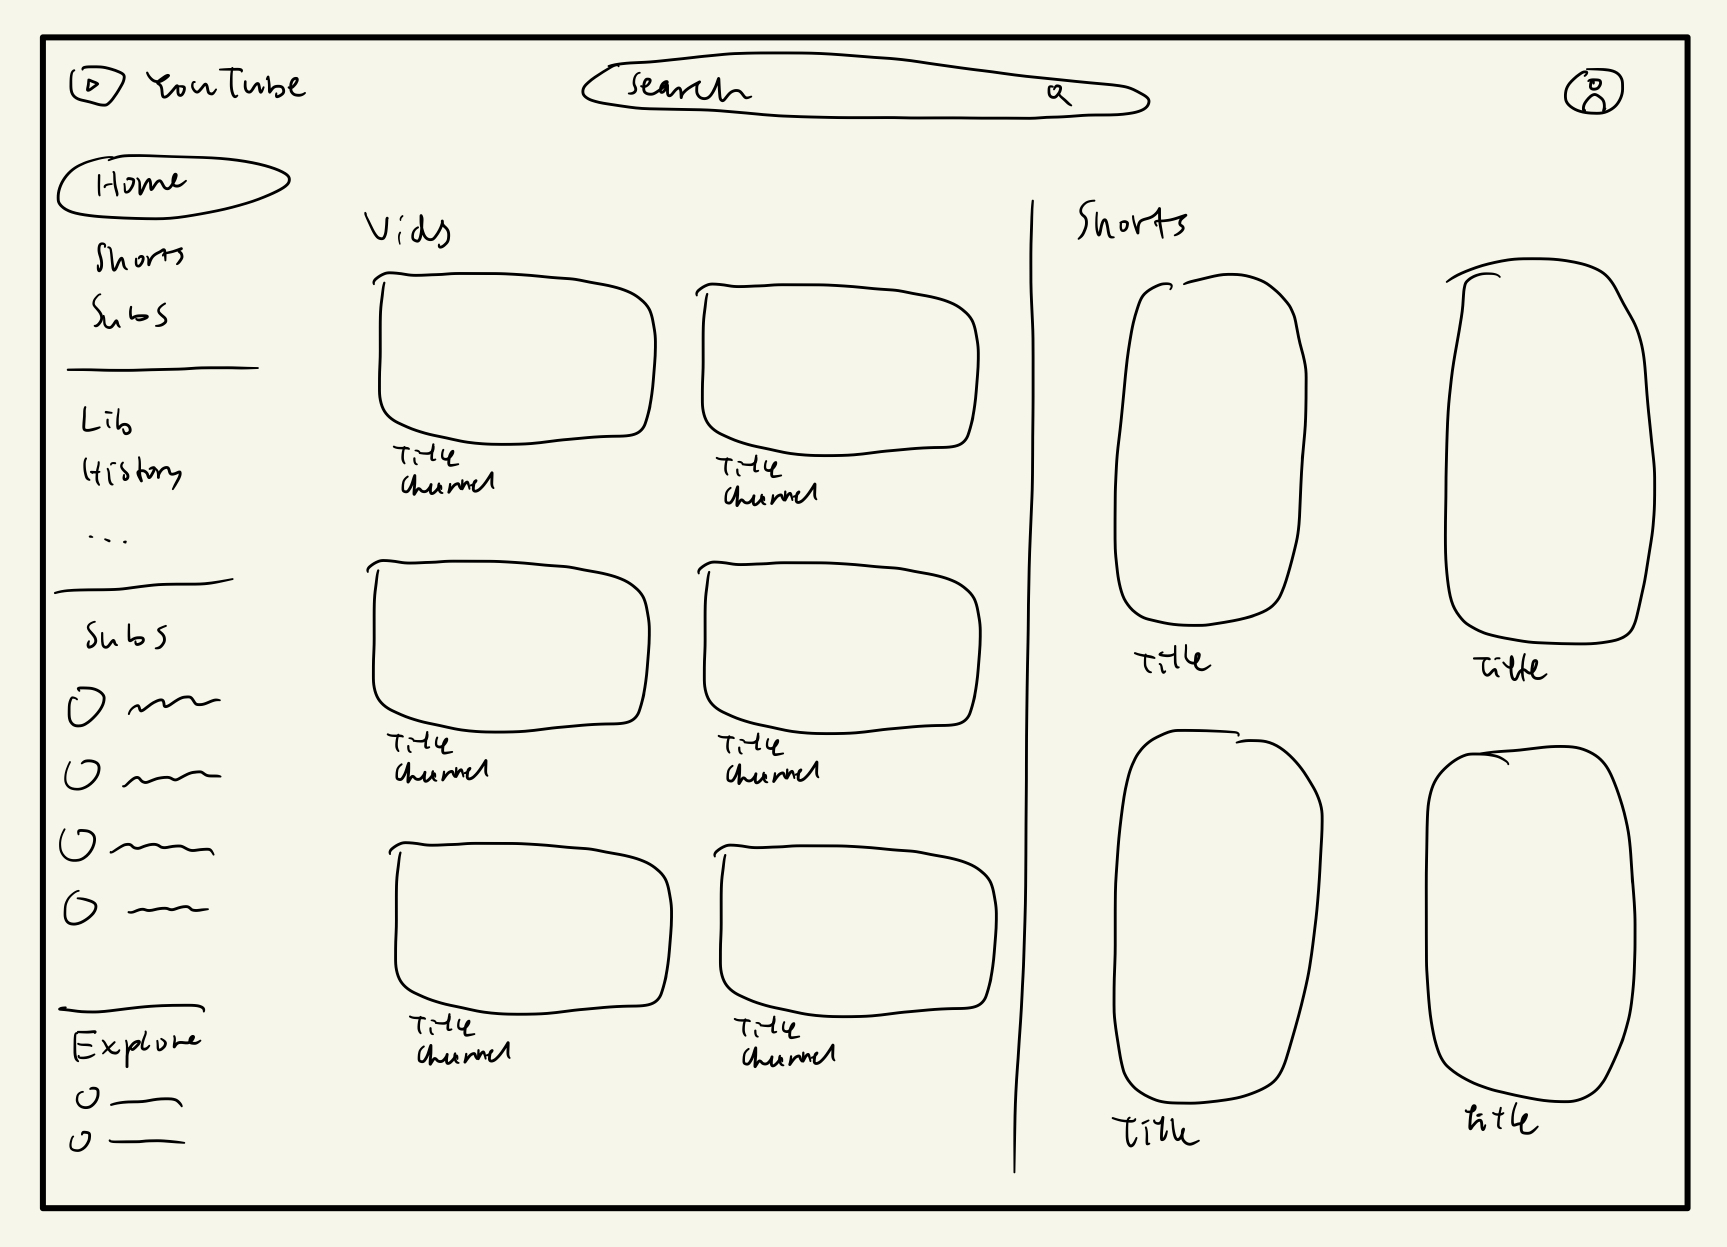 YouTube
Search
Home
Shorts
Subs
Lib
History
...
Subs
Explore
Vids
Title
Channel
Title
Channel
Title
Channel
Title
Channel
Title
Channel
Title
Channel
Shorts
Title
Title
Title
Title